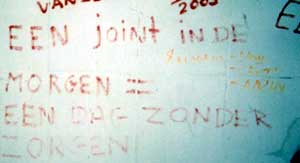 2003
EEN joint IN DE
MORGEN =
EEN DAG ZONDER
ZORGEN!